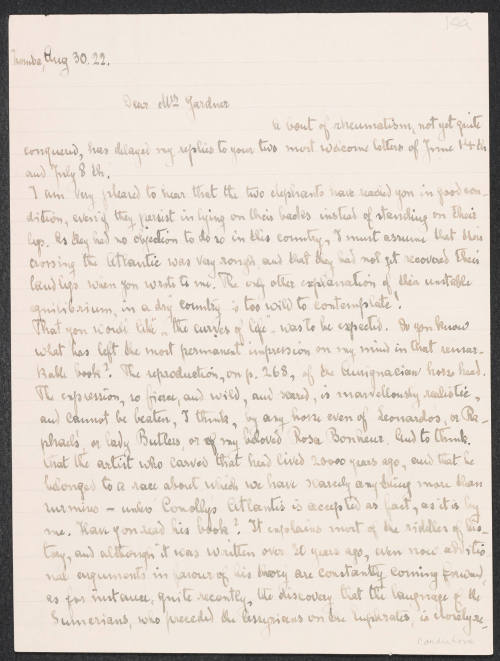 Aug 30. 22.
Dear Mrs Gardner
A bout of rheumatism, not yet quite
conquered, has delayed my replies to your two most welcome letters of June 14th
and July 8th.
I am very pleased to hear that the two elephants have reached you in good con-
dition, even if they persist in lying on their backs instead of standing on their
legs. As they had no objection to do so in this country, I must assume that their
crossing the Atlantic was very rough and that they had not yet recovered their
land legs when you wrote to me. The only other explanation of their unstable
equilibrium, in a dry country is too wild to contemplate!
That you would like "the curves of life" was to be expected. Do you know
what has left the most permanent impression on my mind in that remar-
kable book? The reproduction, on p. 268, of the Aurignacian horse head.
The expression, so fierce, and wild, and scared, is marvellously realistic,
and cannot be beaten, I think, by any horse even of Leonardos, or Ra-
phaels, or Lady Butlers, or of my beloved Rosa Bonheur. And to think
that the artist who carved that head lived 20000 years ago, and that he
belonged to a race about which we have scarcely anything more than
surmises – unless Conolly's Atlantis is accepted as fact, as it is by
me. Have you read his book? It explains most of the riddles of his-
tory, and although it was written over 20 years ago, even now additio-
nal arguments in favour of his theory are constantly coming forward,
as for instance, quite recently, the discovery that the language of the
Sumerians, who preceded the Assyrians on the Euphrates, is closely re-